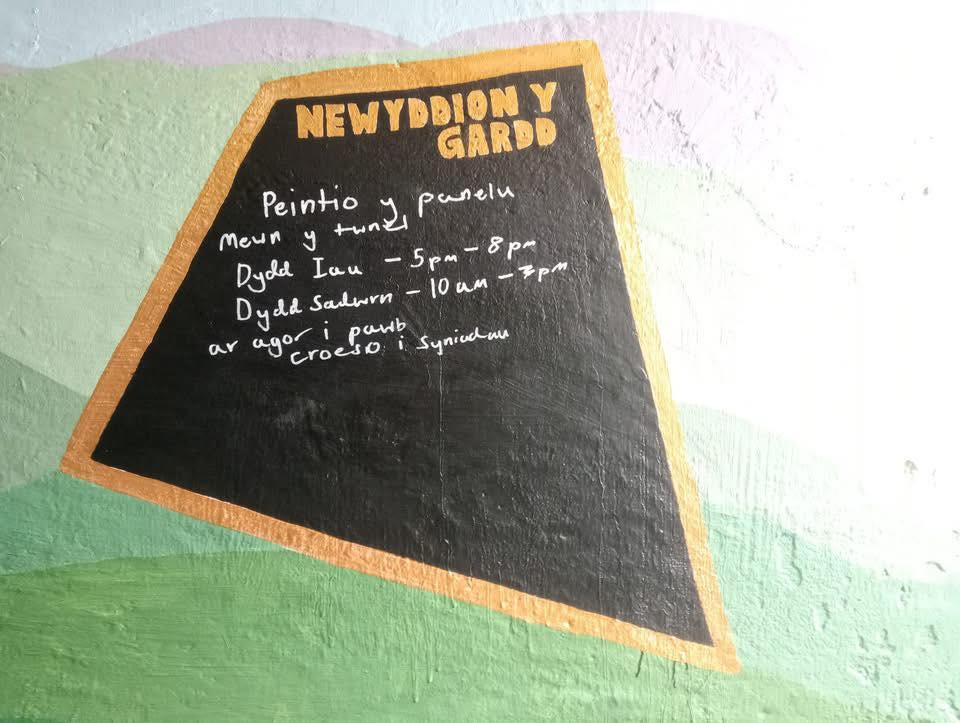 NEWYDDION Y
GARDD
Peintio y panelu
Mewn y twnel
Dydd Iau - 5pm - 8pm
Dydd Sadwrn - 10am - 3pm
ar agor i pawb
croeso i syniadau